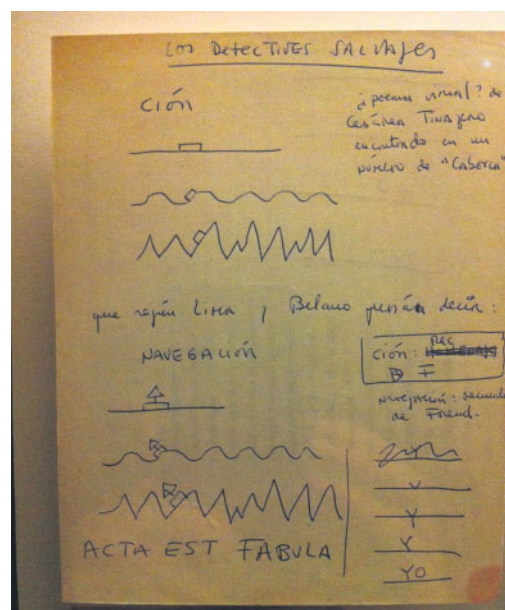 LOS DETECTIVES SALVAJES
CIÓN
¿poema visual? de
Cesárea Tinajero
encontrado en un
número de "Caborca"
que según Lima y Belano quería decir:
NAVEGACIÓN
ción: Rec
D F
navegación: recuerdo
de Freud.
Y
Y
YO
ACTA EST FABULA